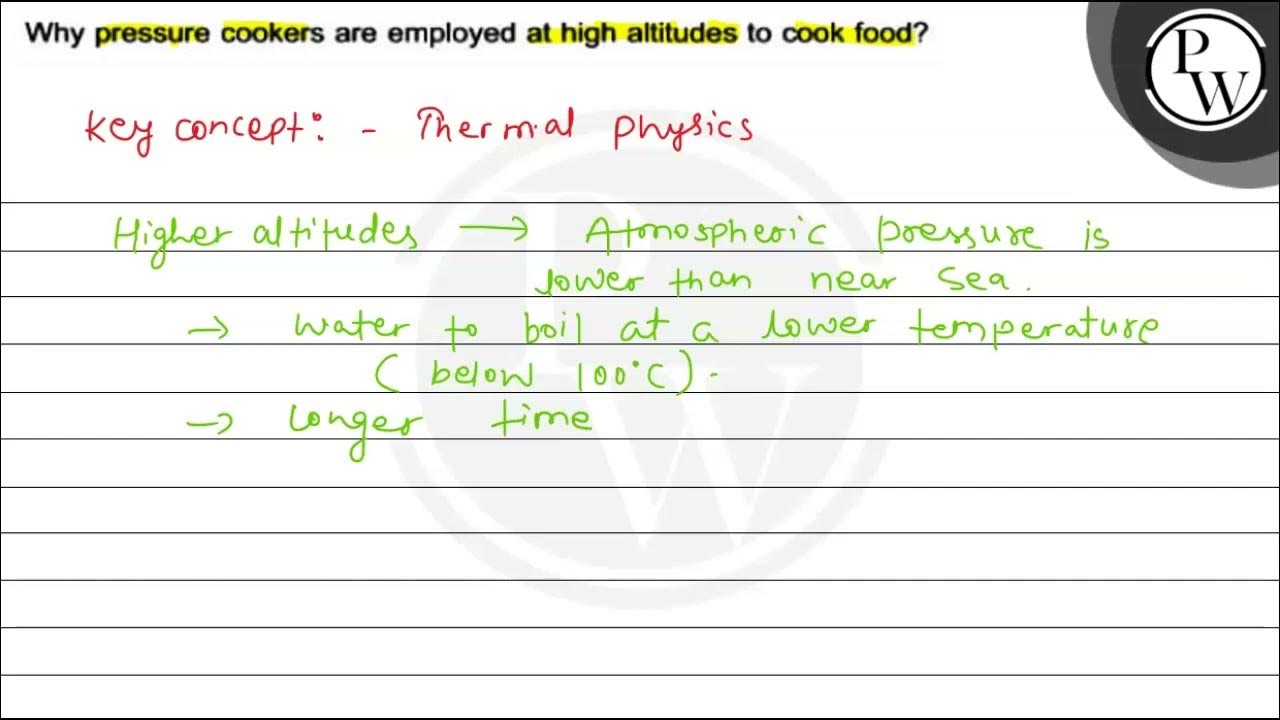 Why pressure cookers are employed at high altitudes to cook food?
PW
Key concept: - Thermal Physics
Higher altitudes → Atmospheric pressure is
lower than near sea.
→ water to boil at a lower temperature
(below 100°C).
→ Longer time
PW